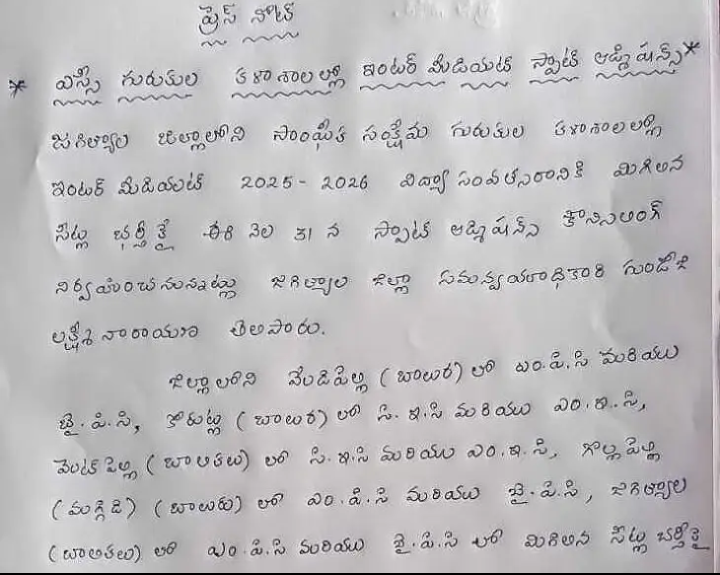 ప్రెస్ నోట్
* ఎస్సీ గురుకుల కళాశాలల్లో ఇంటర్ మీడియట్ స్పాట్ అడ్మిషన్స్ *
జగిత్యాల జిల్లాలోని సాంఘీక సంక్షేమ గురుకుల కళాశాలలల్లో
ఇంటర్ మీడియట్ 2025-2026 విద్యా సంవత్సరానికి మిగిలిన
సీట్ల భర్తీకై ఈ నెల 31 న స్పాట్ అడ్మిషన్స్ కౌన్సిలింగ్
నిర్వహించనున్నట్లు జగిత్యాల జిల్లా సమన్వయాధికారి గుండేటి
లక్ష్మీ నారాయణ తెలిపారు.
జిల్లాలోని మేడిపల్లి (బాలుర) లో ఎం.పి.సి మరియు
బై.పి.సి, కోరుట్ల (బాలుర) లో సి.ఇ.సి మరియు ఎం.ఇ.సి,
మెట్ పెల్లి (బాలికలు) లో సి.ఇ.సి మరియు ఎం.ఇ.సి, గొల్లపెల్లి
(మగ్గిడి) (బాలురు) లో ఎం.పి.సి మరియు బై.పి.సి, జగిత్యాల
(బాలికలు) లో ఎం.పి.సి మరియు బై.పి.సి లో మిగిలిన సీట్ల భర్తీకై